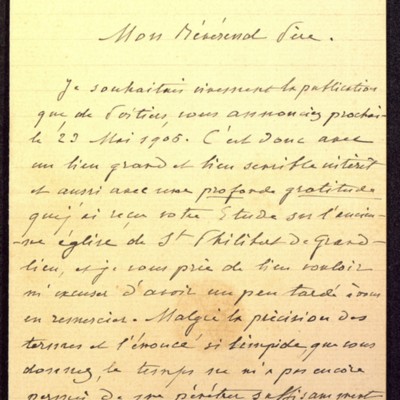 Mon Révérend Père.
Je souhaitais vivement la publication
que, de Poitiers, vous annonciez prochai-
le 23 Mai 1905. C'est donc avec
un bien grand et bien sensible intérêt
et aussi avec une profonde gratitude
que j'ai reçu votre Etude sur l'ancien-
-ne église de St Philibert de Grand-
lieu, et je vous prie de bien vouloir
m'excuser d'avoir un peu tardé à vous
en remercier. Malgré la précision des
termes et l'énoncé si limpide, que vous
donnez, le temps ne m'a pas encore
permis de me pénétrer suffisamment